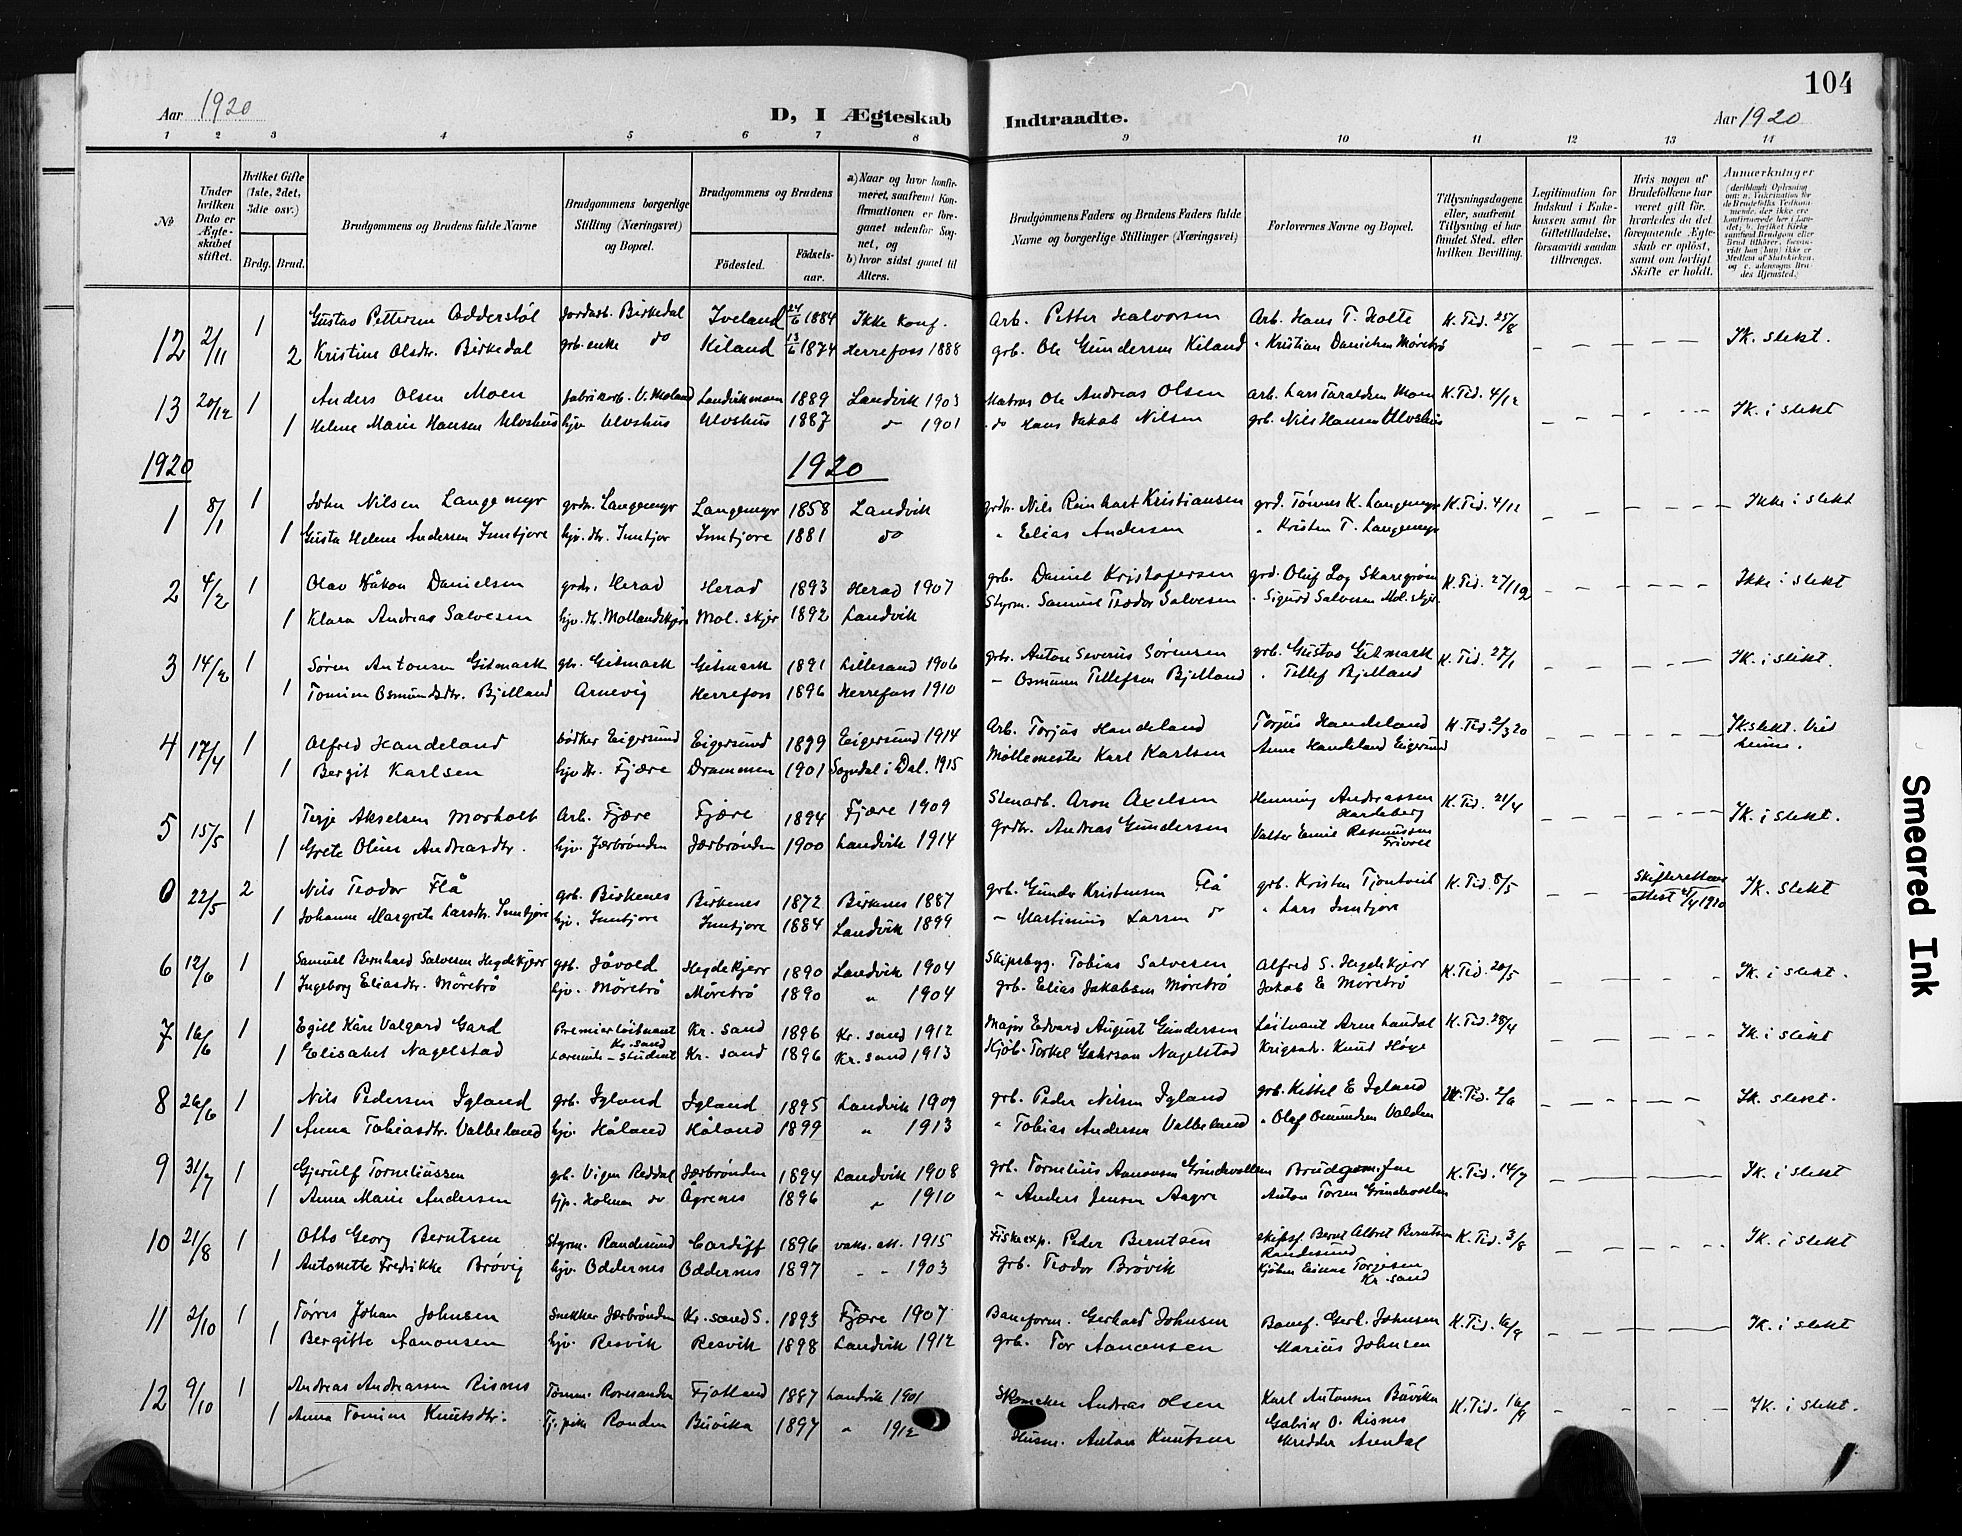 104
Aar 1920
D, I Ægteskab Indtraadte.
Aar 1920
1 2 3 4 5 6 7 8 9 10 11 12 13 14
№
Under hvilken Dato er Ægteskabet stiftet.
Hvilket Gifte (1ste, 2det, 3die osv.)
Brdg. Brud.
Brudgommens og Brudens fulde Navne
Brudgommens borgerlige Stilling (Næringsvei) og Bopæl.
Brudgommens og Brudens
Födested.
Födselsaar.
a) Naar og hvor konfirmeret, saafremt Konfirmationen er foregaaet udenfor Sognet, og
b) hvor sidst gaaet til Alters.
Brudgommens Faders og Brudens Faders fulde Navne og borgerlige Stillinger (Næringsvei)
Forlovernes Navne og Bopæl.
Tillysningsdagene eller, saafremt Tillysning ei har fundet Sted, efter hvilken Bevilling.
Legitimation for Indskud i Enkekassen samt for Giftetilladelse, forsaavidt saadan tiltrænges.
Hvis nogen af Brudefolkene har været gift för, hvorledes da det foregaaende Ægteskab er oplöst, samt om lovligt Skifte er holdt.
Anmærkninger
12 2/11 1 Gustav Pettersen Oddersløl jordarb. Birkedal Iveland 24/6 1884 Ikke konf. Arb. Petter Halvorsen Arb. Hans T. Holte K. Tid. 25/8 Ik. slekt.
2 Kristine Olsdtr. Birkedal grb. enke do Kiland 13/6 1874 Herrefoss 1888 grb. Ole Gundersen Kiland " Kristian Danielsen Møretrø
13 20/12 1 Anders Olsen Moen fabrikarb. V. Moland Landvikmoen 1889 Landvik 1903 Matros Ole Andreas Olsen Arb. Lars Taraldsen Moen K. Tid. 4/12 Ik. i slekt
1 Helene Marie Hansen Ulvshus hjv. Ulvshus Ulvshus 1887 do 1901 do Hans Jakob Nilsen grb. Nils Hansen Ulvshus
1920 1920
1 8/1 1 John Nilsen Langemyr grdr. Langemyr Langemyr 1858 Landvik grdr. Nils Reinhart Kristiansen grd. Tønnes K. Langemyr K. Tid. 4/12 Ikke i slekt
1 Gusta Helene Andersen Inntjore hjv. dtr. Inntjor Inntjore 1881 do " Elias Andersen " Kristen T. Langemyr
2 4/2 1 Olav Håkon Danielsen grdr. Herad Herad 1893 Herad 1907 grb. Daniel Kristofersen grd. Oluf Log K. Tid. 27/1 Ikke i slekt
1 Klara Andrea Salvesen hjv. dt. Mollandskjær Mol. skjer 1892 Landvik Styrm. Samuel Teodor Salvesen " Sigurd Salvesen Mol. skjer
3 14/2 1 Søren Antonsen Gitmark gb. Gitmark Gitmark 1891 Lillesand 1906 grb. Anton Severus Sørensen grb. Gustav Gitmark K. Tid. 27/1 Ik. i slekt.
1 Tomine Osmundsdtr. Bjelland Arnevig Herrefoss 1896 Herrefoss 1910 – Osmunn Tellefsen Bjelland " Tellef Bjelland
4 17/4 1 Alfred Handeland bødker Eigersund Eigersund 1899 Eigersund 1914 Arb. Torjus Handeland Torjus Handeland K. Tid. 2/3 20 Ik slekt. Vied
1 Bergit Karlsen hjv. dtr. Fjære Drammen 1901 Sogndal i Dal. 1915 Møllemester Karl Karlsen Anna Handeland Eigersund hjemme.
5 15/5 1 Terje Akselsen Morholt Arb. Fjære Fjære 1894 Fjære 1909 Stenarb. Aron Axelsen Henning Andreassen Harleberg K. Tid. 21/4 Ik. i slekt.
1 Grete Oline Andreasdtr. hjv. Jærbrønden Jærbrønden 1900 Landvik 1914 grdbr. Andreas Gundersen Valter Emil Rasmussen Frivoll
6 22/5 2 Nils Teodor Flå grb. Birkenes Birkenes 1872 Birkenes 1887 grb. Gunder Kristensen Flå grb. Kristen Tjomtveit K. Tid. 8/5 Skifterettens Ik. slekt
1 Johanne Margrete Larsdtr. Inntjore hjv. Inntjore Inntjore 1884 Landvik 1899 – Martinius Larsen do " Lars Inntjore attest 21/4 1920
6 12/6 1 Samuel Bernhard Salvesen Hegdekjerr grb. Jåvold Hegdekjerr 1890 Landvik 1904 Skipsbyg. Tobias Salvesen Alfred S. Hegdekjerr K. Tid. 20/5 Ik. i slekt.
1 Ingeborg Eliasdtr. Møretrø hjv. Møretrø Møretrø 1890 " 1904 grb. Elias Jakobsen Møretrø Jakob E Møretrø
7 16/6 1 Egill Kåre Valgard Gard Premierløitnant Kr. sand Kr. sand 1896 Kr. sand 1912 Major Edvard August Gundersen Løitnant Arne Laudal K. Tid. 28/4 Ik. i slekt
1 Elisabet Nagelstad student Kr. sand 1896 Kr. sand 1913 Kjøb. Torkel Nagelstad Knud Høye
8 26/6 1 Nils Pedersen Igland grb. Igland Igland 1895 Landvik 1909 grb. Peder Nilsen Igland grb. Kittel E Igland K. Tid. 2/6 Ik. slekt.
1 Anna Tobiasdtr. Valbeland hjv. Håland Håland 1899 " 1913 " Tobias Andersen Valbeland " Olaf Omundsen
9 31/7 1 Gjerulf Torneliussen grb. Vigen Reddal Jærbrønden 1894 Landvik 1908 grb. Tornelius Aanonsen Grindevollen Brudgom. far K. Tid. 14/7 Ik. i slekt
1 Anna Marie Andersen hjv. Holmen do Ågrenes 1896 " 1910 " Anders Jensen Aagre Anton Torsen Grindevollen
10 21/8 1 Otto Georg Berntsen Styrm. Randesund Cardiff 1896 vaks. att. 1915 Fiskeexp. Peder Berntsen skipsf. Bernt Albret Berntsen Randesund K. Tid. 3/8 Ik. i slekt
1 Antonette Fredrikke Brøvig hjv. Oddernes Oddernes 1897 " " 1903 grb. Teodor Brøvik Kjøbm Einar Torgersen Kr. sand
11 2/10 1 Tørres Johan Johnsen Snekker Jærbrønden Kr. sand S. 1893 Fjære 1907 Baneform. Gerhard Johnsen Banef. Gerh. Johnsen K. Tid. 16/9 Ik. i slekt
1 Bergitte Aanonsen hjv. Resvik Resvik 1898 Landvik 1912 grb. Tor Aanonsen Marius Johnsen
12 9/10 1 Andreas Andreassen Risnes Tømm. Roresanden Fjotland 1887 Landvik 1901 Skomaker Andreas Olsen Karl Antonsen Buvika K. Tid. 16/9 Ik. i slekt.
1 Anna Tomine Knutsdtr. Tj. pike Randen Buvika 1897 " 1912 Husm. Anton Knutsen Gabriel O. Risnes
skredder Arendal
Smeared Ink